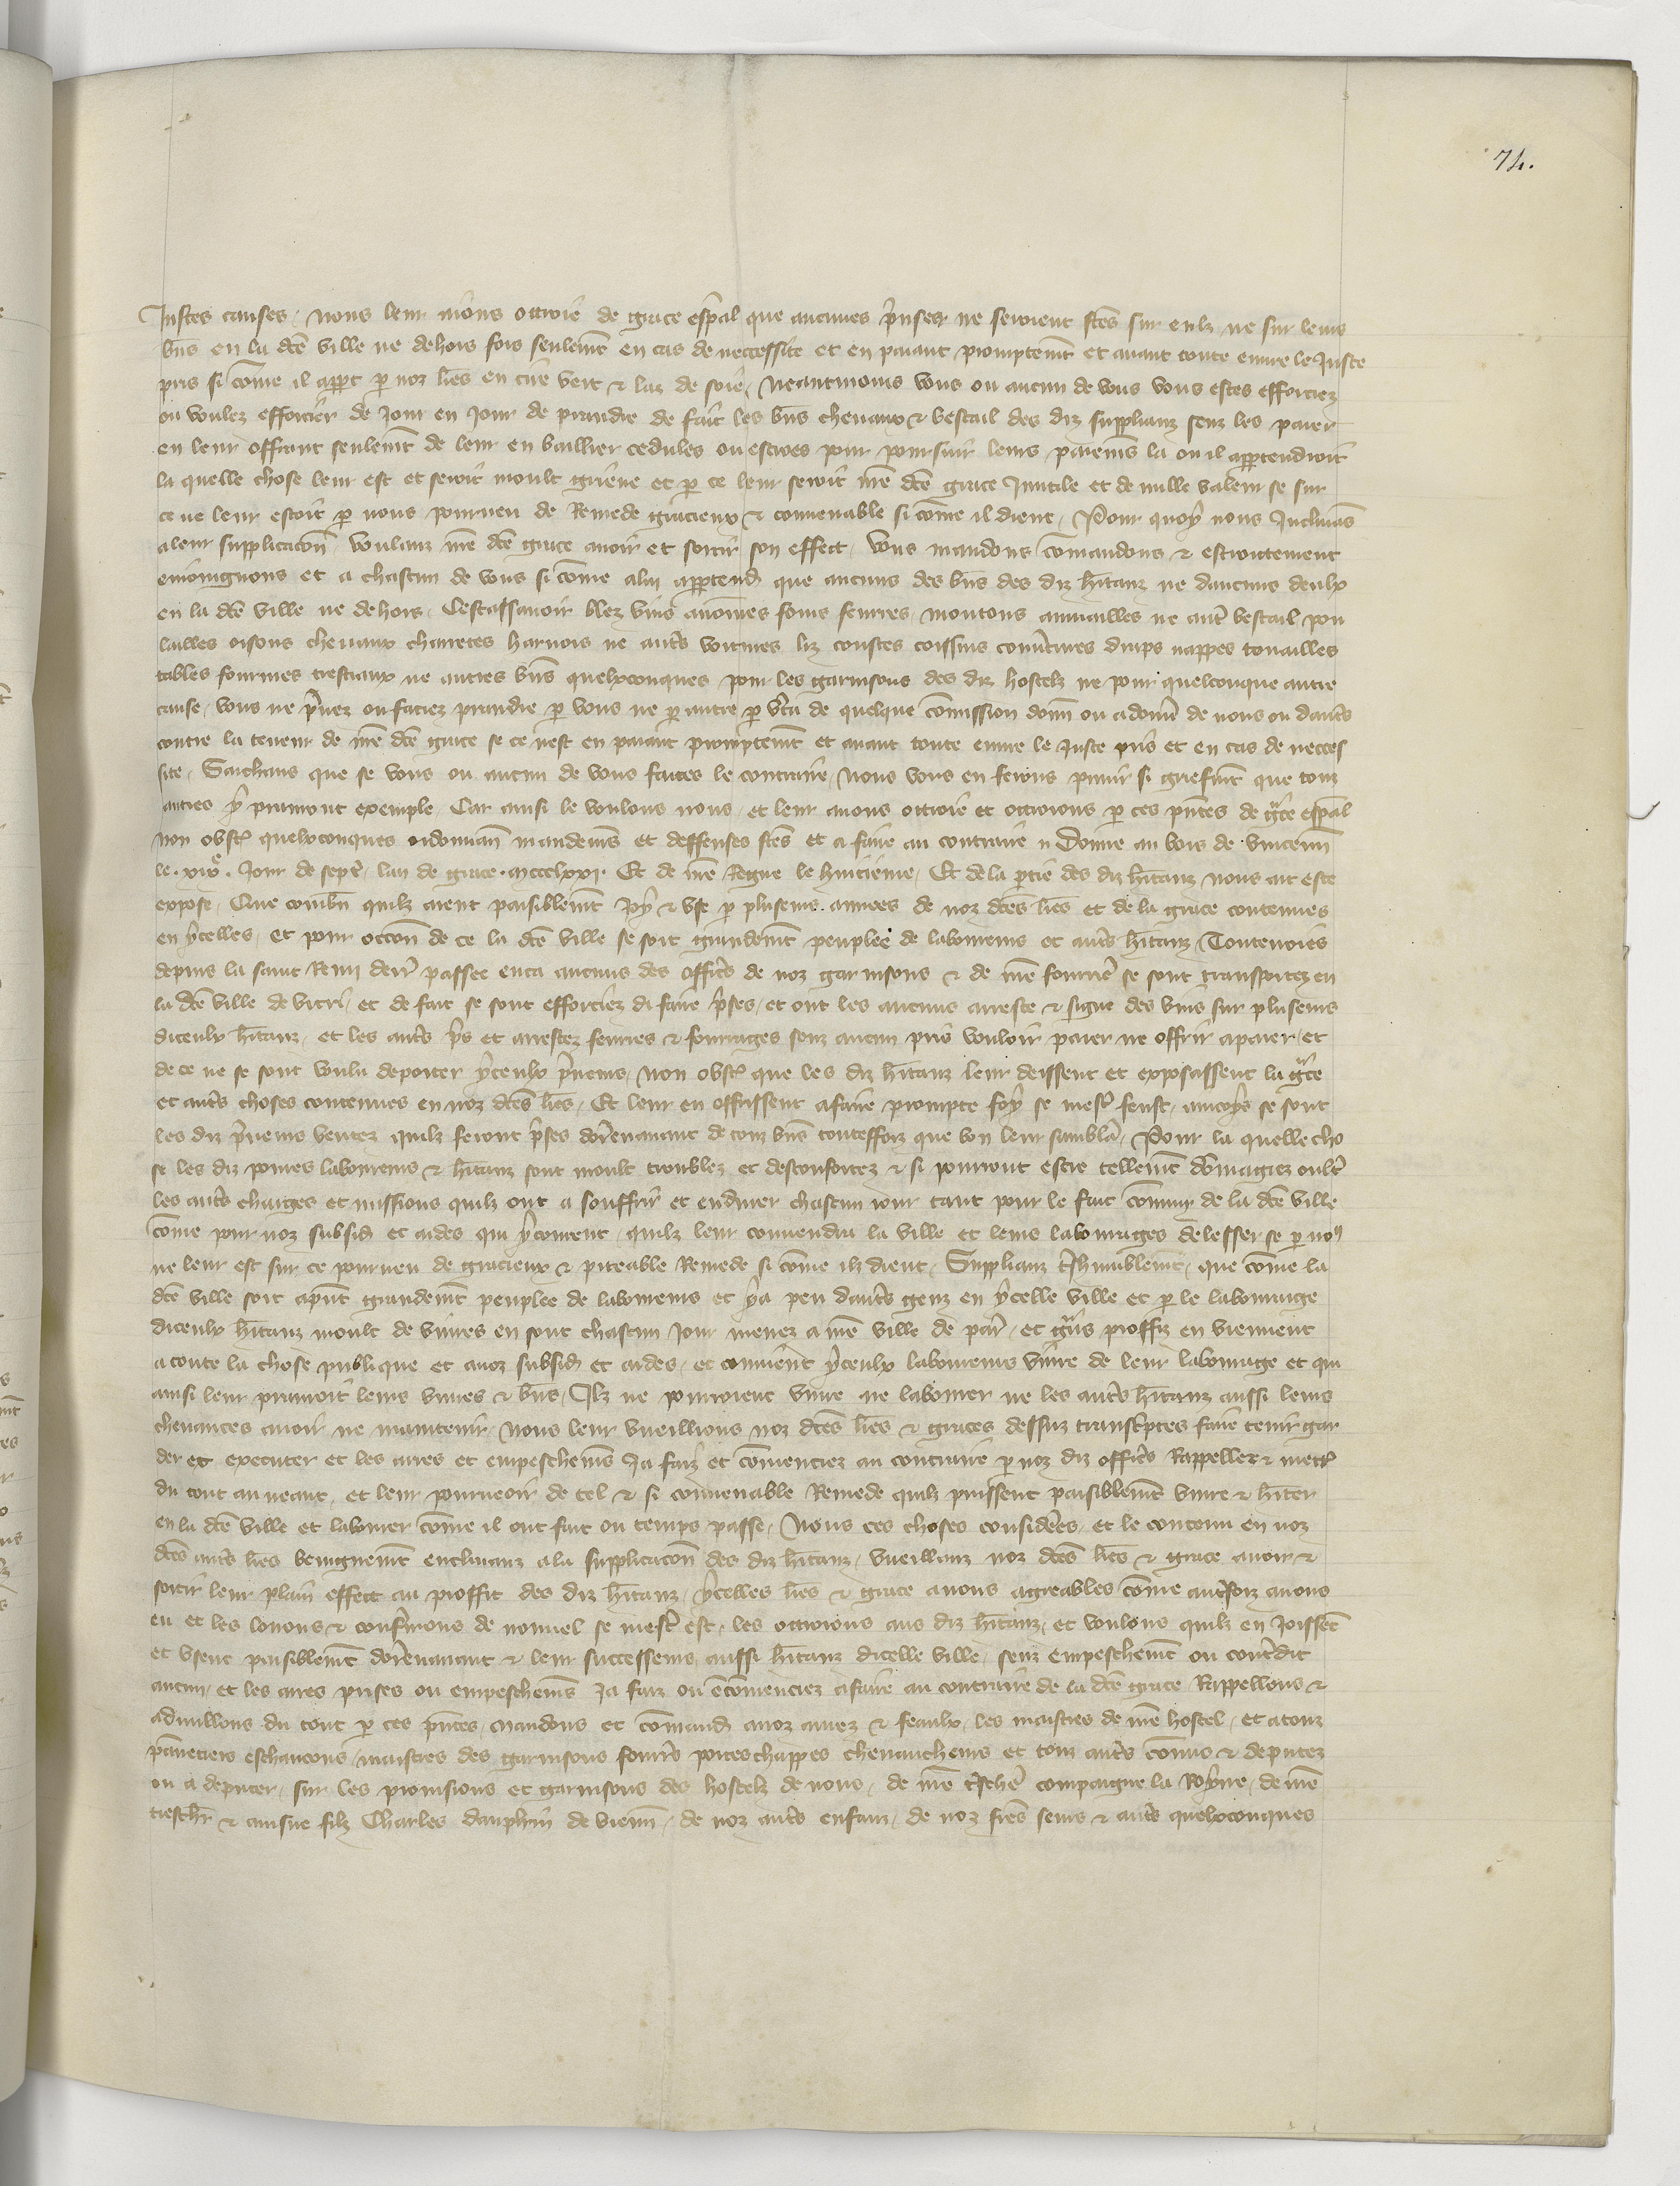 74.
Justes causes, nous leur aions ottroié de grace esp̄al que aucunes p̄nses ne seroient fc̄es sur eulx ne sur leurs
bn̄s en la dc̄e ville ne dehors fors seulem̄t en cas de neccessité et en paiant promptem̄t et avant toute euvre le juste
pris si com̄e il app̄t p noz lr̄es en cire vert & laz de soie, Neantmoins vous ou aucun de vous vous estes efforciez
ou voulez efforcier de jour en jour de prandre de fait les bn̄s chevaux & bestail des diz supplianz senz les paier
en leur offrant seulem̄t de leur en baillier cedules ou escroes pour poursuir leurs paiem̄s la ou il app̄tendroit
la quelle chose leur est et seroit moult griéve et p ce leur seroit n̄re dc̄e grace Inutile et de nulle valeur se sur
ce ne leur estoit p nous pourveu de Remede gracieux & convenable si com̄e il dient, Pour quoy nous Inclinās
a leur supplicacōn voulanz n̄re dc̄e grace avoir et sortir son effect, vous mandons com̄andons & estroitement
enioingnons et a chascun de vous si com̄e a lui app̄tend̄ que aucuns des bn̄s des diz h̄itanz ne daucuns deulx
en la dc̄e ville ne dehors, Cestassavoir blez vins avoines foins feurres, moutons aumailles ne aut̄ bestail pou
lailles oisons chevaux charretes harnois ne aut̄s voitures liz coustes coissins couv̄tures draps nappes touailles
tables fourmes trestiaux ne autres bn̄s quelxconques pour les garnisons des diz hostelz ne pour quelconque autre
cause, vous ne p̄nez ou faciez prandre p vous ne p autre p v̄tu de quelque com̄ission don̄ ou a don̄ de nous ou daut̄s
contre la teneur de n̄re dc̄e grace se ce nest en paiant promptem̄t et avant toute euvre le juste pris et en cas de necces
sité, Sachans que se vous ou aucun de vous faites le contraire, Nous vous en ferons punir si griefm̄t que touz
autres y pranront exemple, Car ainsi le voulons nous, et leur avons ottroié et ottroions p ces pn̄tes de gr̄ce esp̄al
non obst̄ quelxconques ordonnan̄ mandem̄s et deffenses fc̄es et a faire au contraire, Donné au bois de vincenn̄
le xixe. jour de sept̄, lan de grace mccclxxi Et de n̄re Regne le huitieme, Et de la ptie des diz h̄itanz nous ait este
exposé, Que combn̄ quilz aient paisiblem̄t joy & usé p pluseurs annees de noz dc̄es lr̄es et de la grace contenues
en ycelles, et pour occōn de ce la dc̄e ville se soit grandem̄t peuplee de laboureurs et aut̄s h̄itanz, Toutevoies
depuis la saint Remi derr̄ passee enca aucuns des offic̄s de noz garnisons & de n̄re fourr̄e se sont transportez en
la dc̄e ville de vitri, et de fait se sont efforciez di faire p̄ses, et ont les aucuns arresté & signé des vins sur pluseurs
diceulx h̄itanz, et les aut̄s p̄s et arrestez feurres & fourrages senz aucun pris vouloir paier ne offrir a paier, et
de ce ne se sont voulu deporter yceulx p̄neurs, Non obst̄ que les diz h̄itanz leur deissent et exposassent la gr̄ce
et aut̄s choses contenues en noz dc̄es lr̄es, Et leur en offrissent a faire prompte foy se mest̄ feust, aincoys se sont
les diz p̄neurs ventez quilz feront p̄ses dor̄enavant de touz bn̄s toutesfoiz que bon leur sambla, Pour la quelle cho
se les diz povres laboureurs & h̄itanz sont moult troublez et desconfortez & si pourront estre tellem̄t dōmagiez oult̄
les aut̄s charges et missions quilz ont a souffrir et endurer chascun jour tant pour le fait com̄un de la dc̄e ville
com̄e pour noz subsid̄ et aides qui y courent, quilz leur convendra la ville et leurs labourages delesser se p no9
ne leur est sur ce pourveu de gracieux & piteable Remede si com̄e ilz dient, Supplianz t̄shumblem̄t, que com̄e la
dc̄e ville soit ap̄nt grandem̄t peuplee de laboureurs et y a peu daut̄s genz en ycelle ville et p le labourage
diceulx h̄itanz moult de vivres en sont chascun jour menez a n̄re ville de par̄, et gr̄ns proffiz en viennent
a toute la chose publique et a noz subsid̄ et aides, et convient yceulx laboureurs vivre de leur labourage et qui
ainsi leur pranroit leurs vivres & bn̄s, Ilz ne pourroient vivre ne labourer ne les aut̄s h̄itanz aussi leurs
chevances avoir ne maintenir, Nous leur vueillions noz dc̄es lr̄es & graces dessuz transc̄ptes faire tenir gar
der et executer et les arrés et empeschem̄s ja faiz et com̄enciez au contraire p noz diz offic̄s Rappeller & mett̄
du tout au neant, et leur pourveoir de tel & si convenable Remede quilz puissent paisiblem̄t vivre & h̄iter
en la dc̄e ville et labourer com̄e il ont fait ou temps passé, Nous ces choses considerees, et le contenu en noz
dc̄es aut̄s lr̄es benignem̄t enclinanz a la supplicacōn des diz h̄itanz, vueillanz noz dc̄es lr̄es & grace avoir &
sortir leur plain effect au proffit des diz h̄itanz, ycelles lr̄es & grace avons agreables com̄e aut̄foiz avons
eu et les louons & conf̄mons de nouvel se mest̄ est, les ottroions aus diz h̄itanz, et voulons quilz en joissēt
et usent paisiblem̄t dor̄enavant & leur successeurs aussi h̄itanz dicelle ville, senz empeschem̄t ou cont̄dit
aucun, et les arrés prises ou empeschem̄s ja faiz ou ēcom̄enciez a faire au contraire de la dc̄e grace Rappellons &
adnullons du tout p ces pn̄tes, mandons et com̄and̄ a noz amez & feaulx, les maistres de n̄re hostel, et a touz
pānetiers eschancons, maistres des garnisons fourr̄s porteschappes chevaucheurs et touz aut̄s com̄is & deputez
ou a deputer, sur les provisions et garnisons des hostelz de nous, de n̄re t̄schē compaigne la Royne, de n̄re
treschr̄ & ainsné filz Charles dauphin de vienn̄, de noz aut̄s enfanz, de noz frēs seurs & aut̄s quelxconques